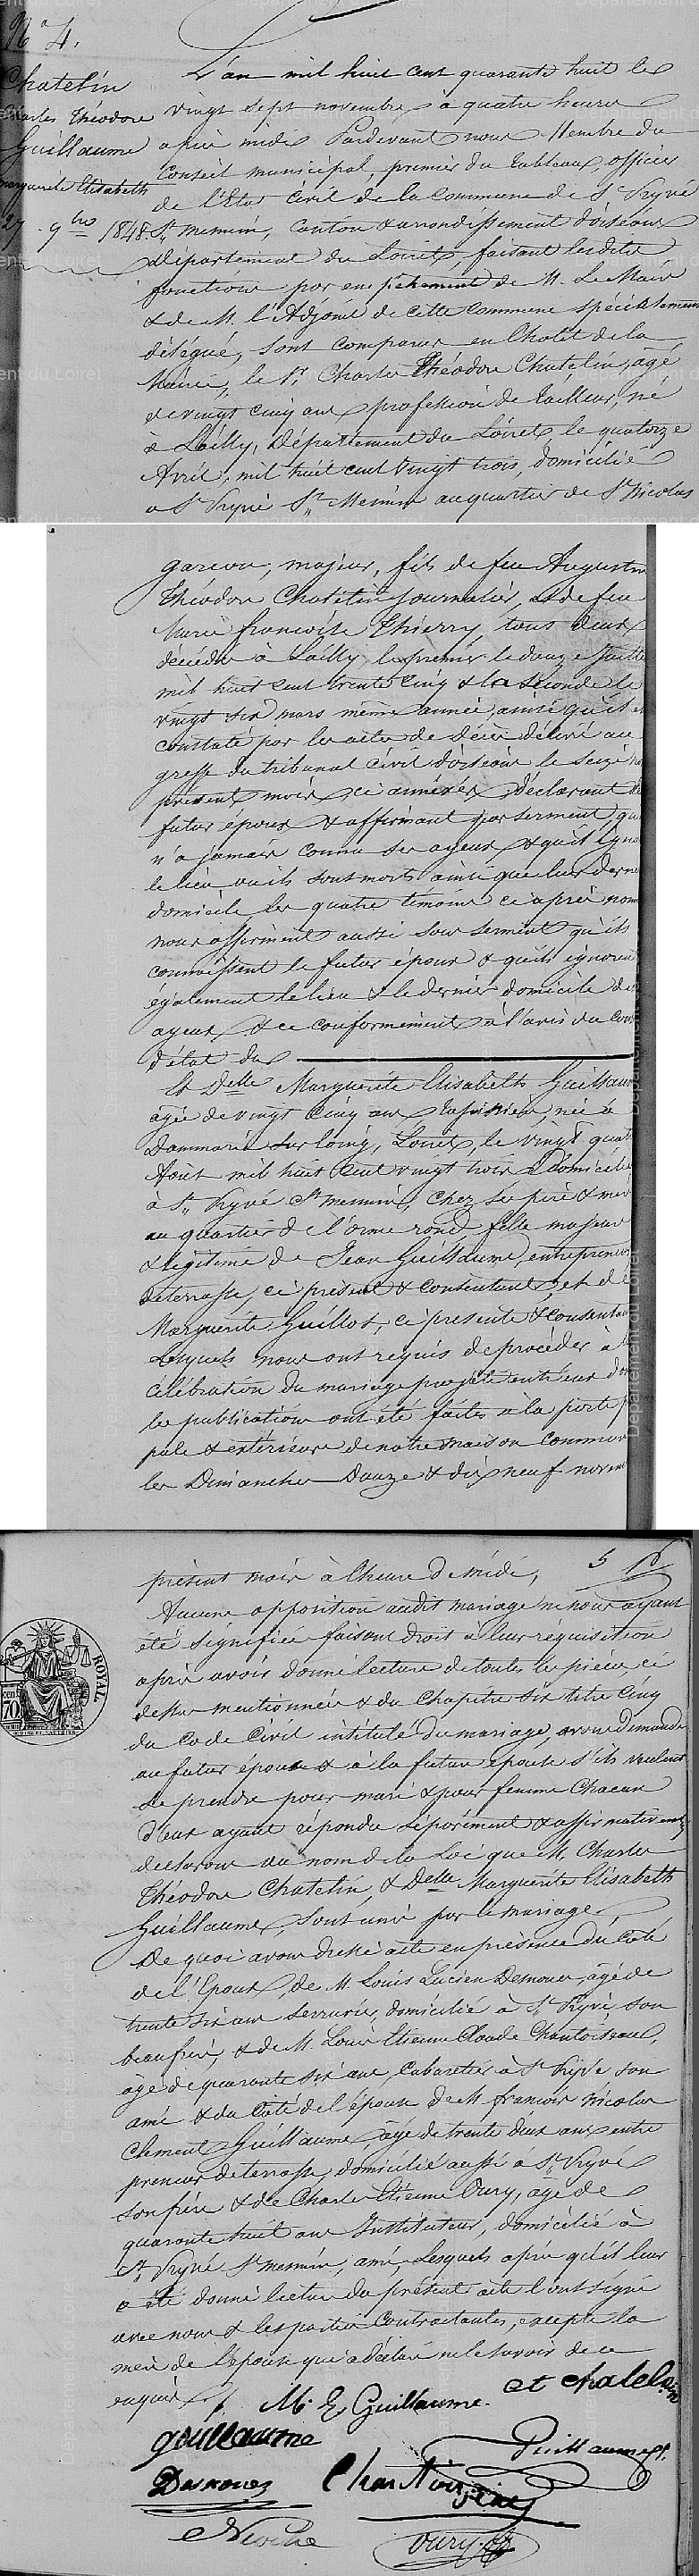 N° 4.
Chatelin
Charles Théodore
Guillaume
Marguerite Elisabeth
27 9bre 1848
L'an mil huit cent quarante huit le
vingt sept novembre à quatre heures
après midi Pardevant nous Membre du
Conseil municipal, premier du tableau, officier
de l'Etat Civil de la Commune de St Pryvé
St mesmin, Canton & arrondissement d'orléans
département du Loiret, faisant lesdites
fonctions par empêchement de M. Le Maire
& de M. l'Adjoint de cette commune spécialement
délégué, sont comparus en l'hotel de la
Mairie, le Sr Charles Théodore Chatelin, agé
de vingt cinq ans profession de tailleur, né
à Lailly, Département du Loiret le quatorze
Avril, mil huit cent vingt trois, domicilié
à St Pryvé St Mesmin au quartier de St Nicolas
garçon, majeur, fils de feu Augustin
Théodore Chatelin journalier, & de feu
Marie françoise Thierry, tous deux
décédés à Lailly le premier le douze juillet
mil huit cent trente cinq & la seconde le
vingt six mars même année, ainsi qu'il est
constaté par les actes de décès délivré au
greffe du tribunal civil d'orléans le seize
présent mois, ci annexés, Déclarant le
futur époux & affirmant par serment qu
n'a jamais connu ses ayeux & qu'il ignore
le lieu où ils sont morts ainsi que leur dernier
domicile, les quatre témoins ci après nommés
nous affirment aussi sous serment qu'ils
connaissent le futur époux & qu'ils ignorent
également le lieu & le dernier domicile des
ayeux, & ce conformément à l'avis du Conseil
d'état du
Et Delle Marguerite Elisabeth Guillaume
âgée de vingt cinq ans, née à
Dammarie sur loing, Loiret, le vingt quatre
Août mil huit cent vingt trois Domiciliée
à St Pryvé St mesmin, chez ses père & mère
au quartier de l'orme rond, fille majeure
& légitime de Jean Guillaume, entrepreneur
de terrasse, ci présent & consentant, et de
Marguerite Guillot, ci présente & consentante
Lesquels nous ont requis de procéder à la
célébration du mariage projeté entr'eux dont
les publications ont été faites à la porte p
pale & extérieure de notre maison commune
les Dimanches Douze & dix neuf novembre
5
présent mois à l'heure de midi,
Aucune opposition audit mariage ne nous ayant
été signifiée faisant droit à leur réquisition
après avoir donné lecture de toutes les pièces, ci
dessus mentionnées & du Chapitre six titre Cinq
du Code Civil intitulé du mariage, avons demandé
au futur époux & à la future épouse s'ils veulent
se prendre pour mari & pour femme Chacun
d'eux ayant répondu séparément & affirmativement
déclarons au nom de la Loi que M. Charles
Théodore Chatelin, & Delle Marguerite Elisabeth
Guillaume, sont unis par le mariage.
De quoi avons dressé acte en présence du Coté
de l'Epoux, de M. Louis Lucien Desnoues, âgé de
trente six ans serrurier, domicilié à St Pryvé, son
beaufrère, & de M. Louis Etienne Claude Chantoiseau,
âgé de quarante six ans, Cabaretier à St Pryvé son
ami & du Coté de l'épouse de M. françois Nicolas
Clément Guillaume, âgé de trente deux ans entre
preneur de terrasse, domicilié aussi à St Pryvé
son frère & de Charles Etienne Oury, âgé de
quarante huit ans Instituteur, domicilié à
St Pryvé St mesmin, ami, Lesquels après qu'il leur
a été donné lecture du présent acte l'ont signé
avec nous & les parties Contractantes, excepté la
mère de l'épouse qui a déclaré ne le savoir de ce
enquise
M. E Guillaume. Ct Chatelin
guillaume Guillaume
Desnoues Chantoiseau
Oury
ROYAL
70